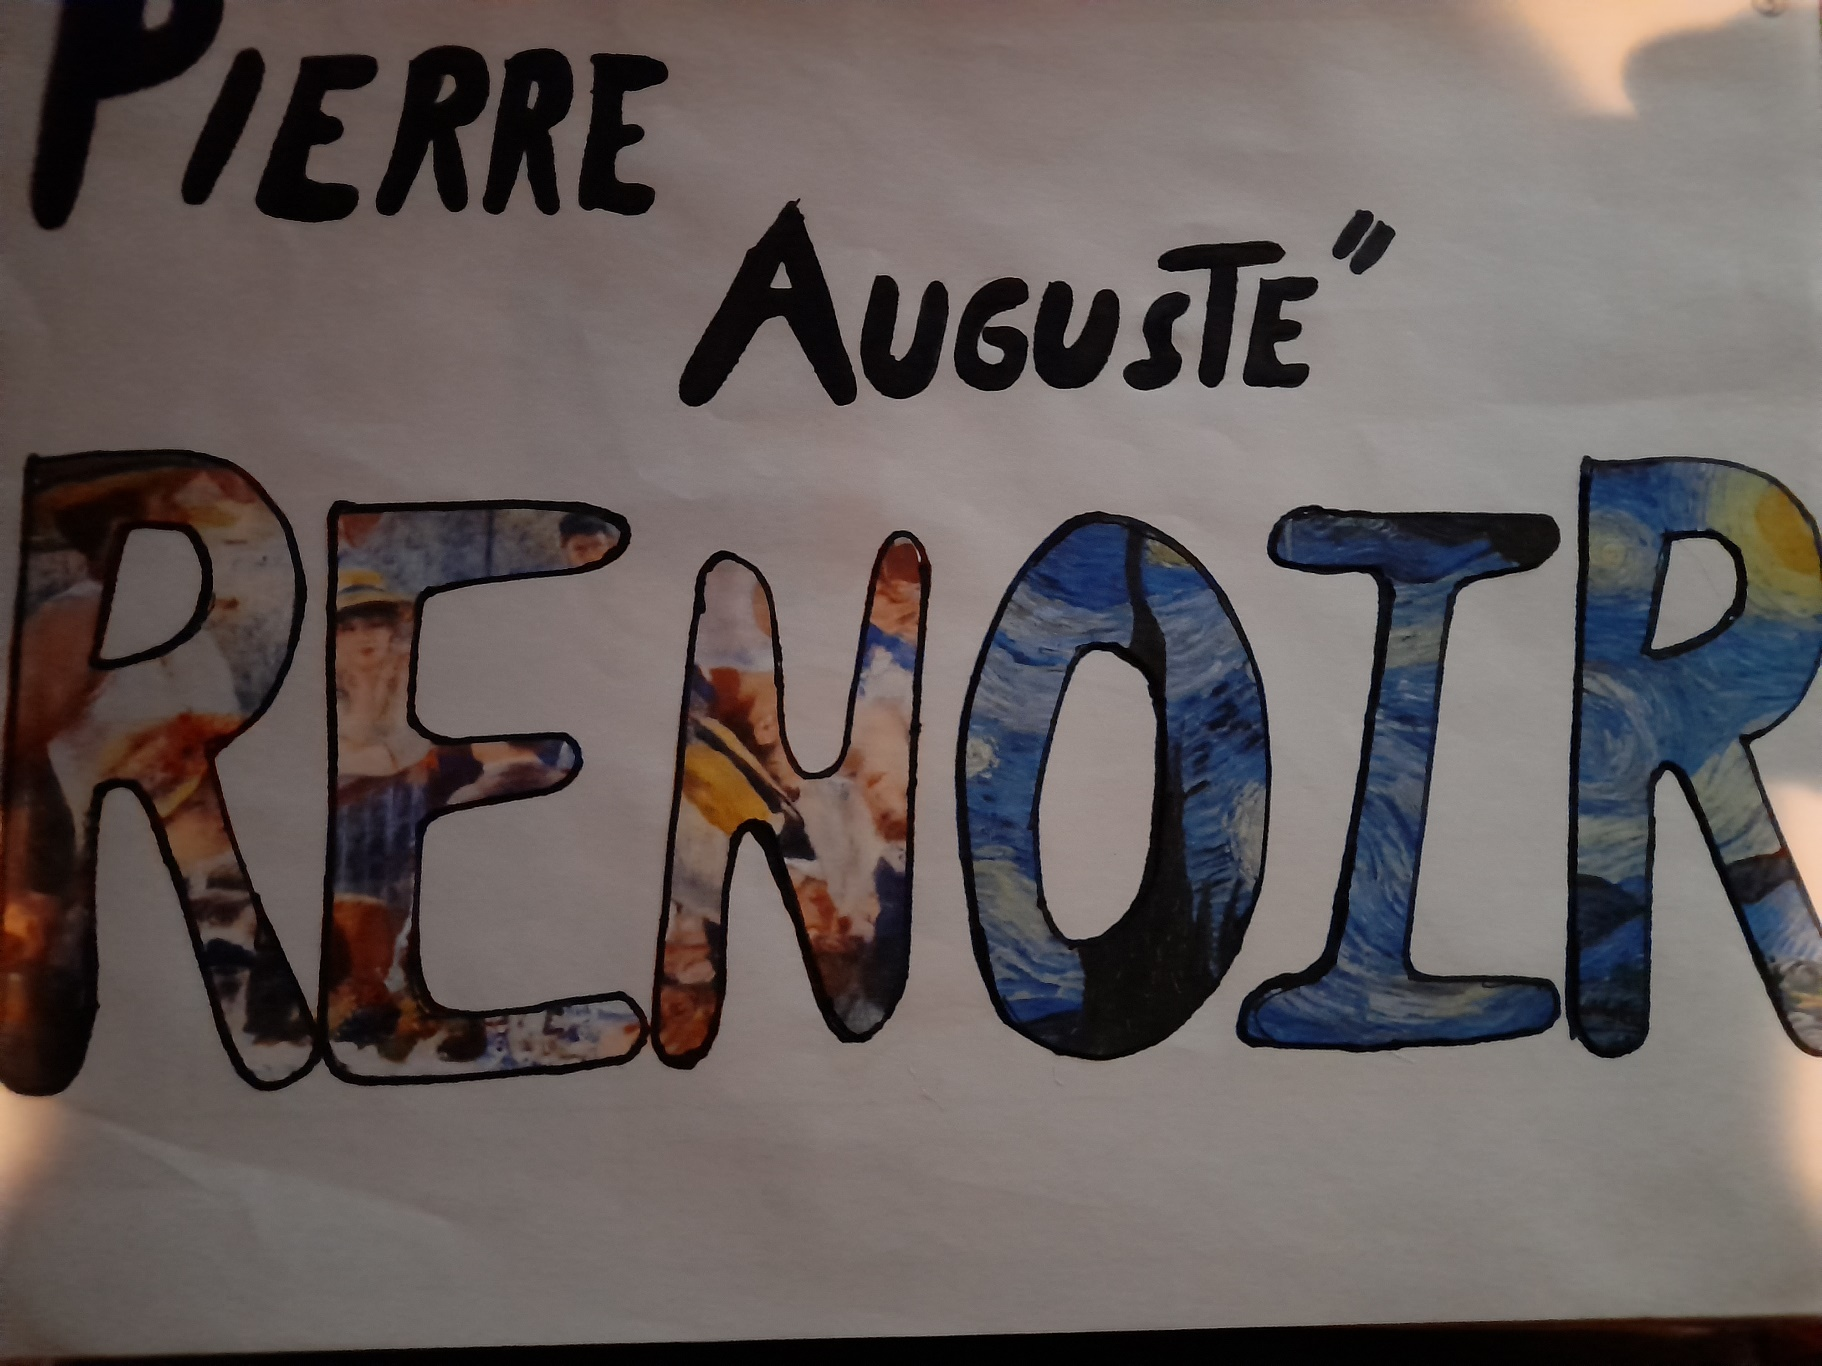 PIERRE
AUGUSTE"
RENOIR